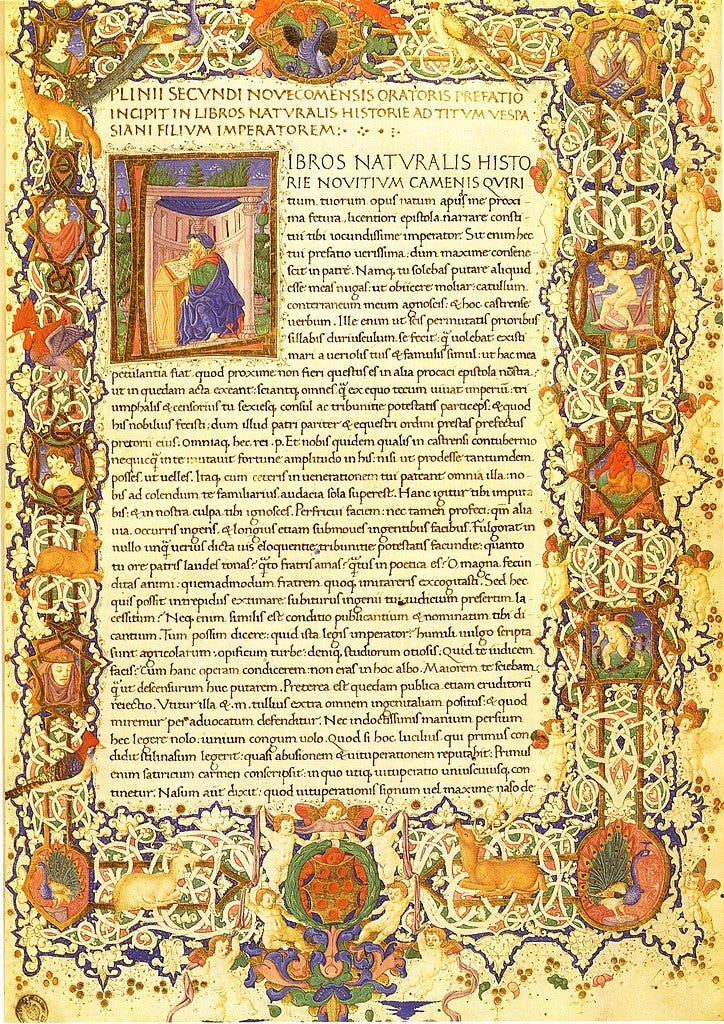 PLINII SECVNDI NOVECOMENSIS ORATORIS PREFATIO
INCIPIT IN LIBROS NATVRALIS HISTORIE AD TITVM VESPA
SIANI FILIVM IMPERATOREM:
LIBROS NATVRALIS HISTO
RIE NOVITIVM CAMENIS QVIRI
tium tuorum opus natum apud me proxi
ma fetura licentiori epistola narrare consti
tui tibi iocundissime imperator. Sit enim hec
tui prefatio uerissima: dum maxime consene
scit in patre. Namq; tu solebas putare aliquid
esse meas nugas: ut obiicere moliar catullum
conterraneum meum agnoscis: & hoc castrense
uerbum. Ille enim ut scis permutatis prioribus
sillabis duriusculum se fecit: q̃ uolebat existi
mari a ueriolis tuis & famulis simul: ut hac mea
petulantia fiat quod proxime non fieri questus es in alia procaci epistola nostra:
ut in quedam acta exeant: sciantq; omnes q̃ ex equo tecum uiuat imperiũ: tri
umphalis & censorius tu sexiesq; consul ac tribunitie potestatis particeps: & quod
his nobilius fecisti: dum illud patri pariter & equestri ordini prestas prefectus
pretorii eius. Omniaq; hec rei .p. Et nobis quidem qualis in castrensi contubernio
nequicq̃ in te mutauit fortune amplitudo in his: nisi ut prodesse tantumdem
posses: ut uelles. Itaq; cum ceteris in uenerationem tui pateant omnia illa: no
bis ad colendum te familiarius audacia sola superest. Hanc igitur tibi imputa
bis: & in nostra culpa tibi ignosces. Perfricui faciem: nec tamen profeci: qm̃ alia
uia occurris ingens, & longius etiam submoues ingentibus facibus. Fulgorat in
nullo unq̃ uerius dicta uis eloquentie: tribunitie potestatis facundie: quanto
tu ore patris laudes tonas: q̃to fratris amas: q̃tus in poetica es: O magna fecun
ditas animi: quemadmodum fratrem quoq; imitareris excogitasti. Sed hec
quis possit intrepidus extimare subiturus ingenii tui iudicium presertim la
cessitum: Neq; enim similis est conditio publicantium & nominatim tibi di
cantium. Tum possim dicere: quid ista legis imperator: humili uulgo scripta
sunt: agricolarum: opificum turbe: deniq; studiorum otiosis. Quid te iudicem
facis: Cum hanc operam condicerem: non eras in hoc albo. Maiorem te sciebam
q̃ ut descensurum huc putarem. Preterea est quedam publica etiam eruditorũ
reiectio. Vtitur illa & .m. tullius extra omnem ingenii aliam positus: & quod
miremur per aduocatum defenditur. Nec indoctissimis manium persium
hec legere nolo: iunium congum uolo. Quod si hoc lucilius qui primus con
didit stili nasum
legerit: quasi abusionem & uituperationem reputabit: Primus
enim satiricum carmen conscripsit: in quo utiq; uituperatio uniuscuiusq; con
tinetur. Nasum aũt dixit: quod uituperationis signum uel maxime naso de